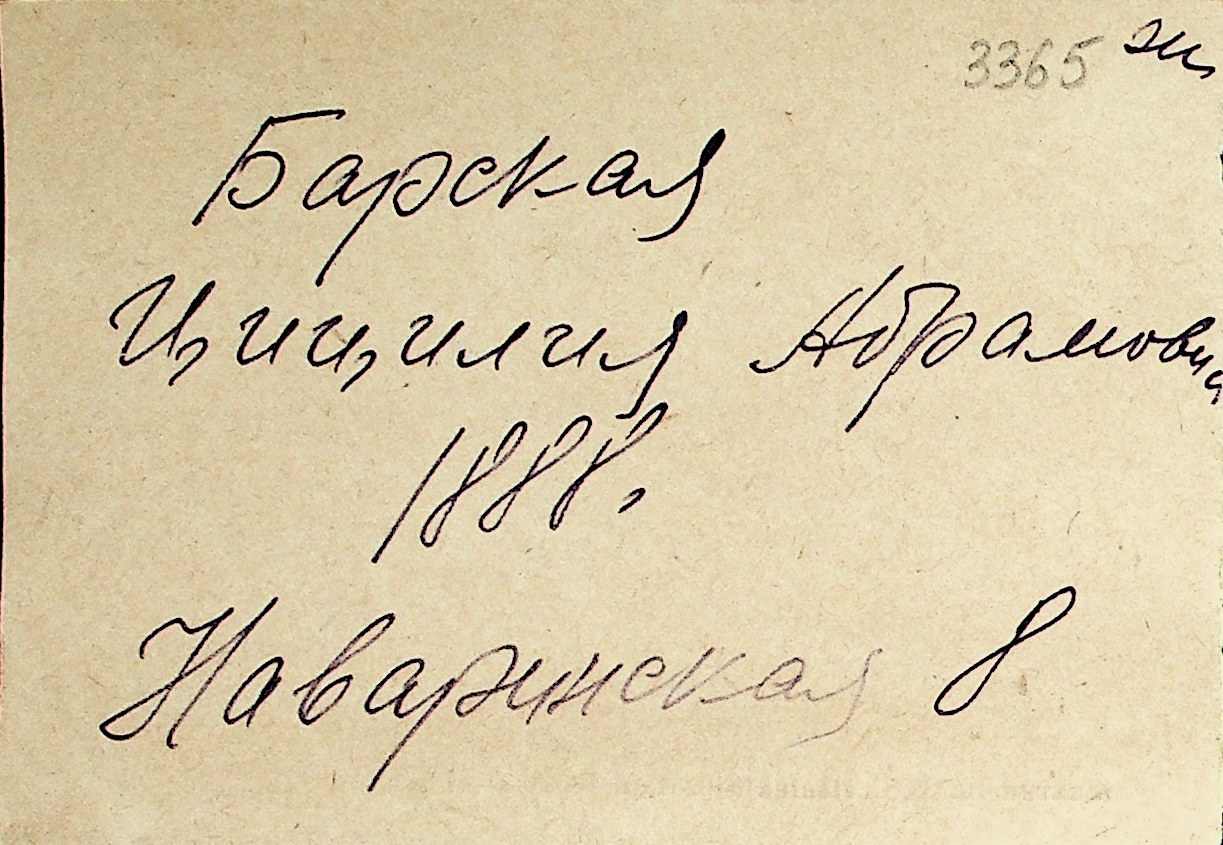 3365
Барская
Цицилия Абрамовна
1888.
Наваринская 8